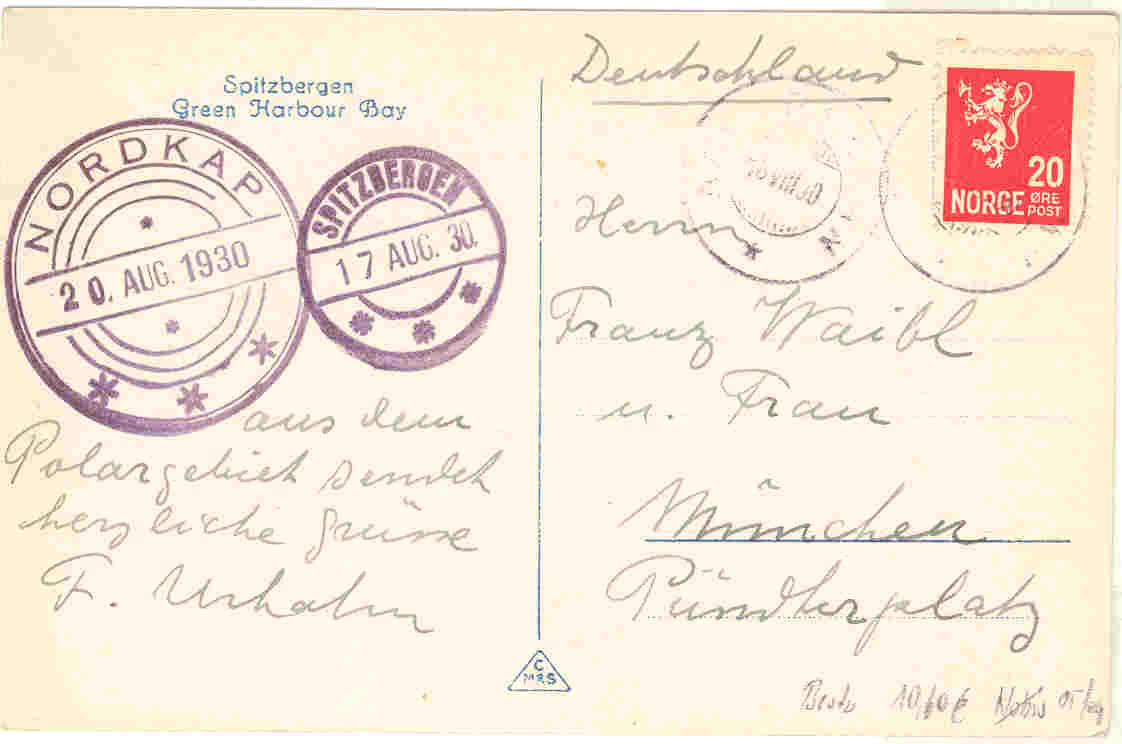 Spitzbergen
Green Harbour Bay
NORDKAP
20. AUG. 1930
SPITZBERGEN
17 AUG. 30.
aus dem
Polargebiet sendet
herzliche Grüsse
F.
Deutschland
20
NORGE ØRE POST
VIII 30
Herrn
Franz Waibl
u. Frau
München
Pündterplatz
C
MRS
10